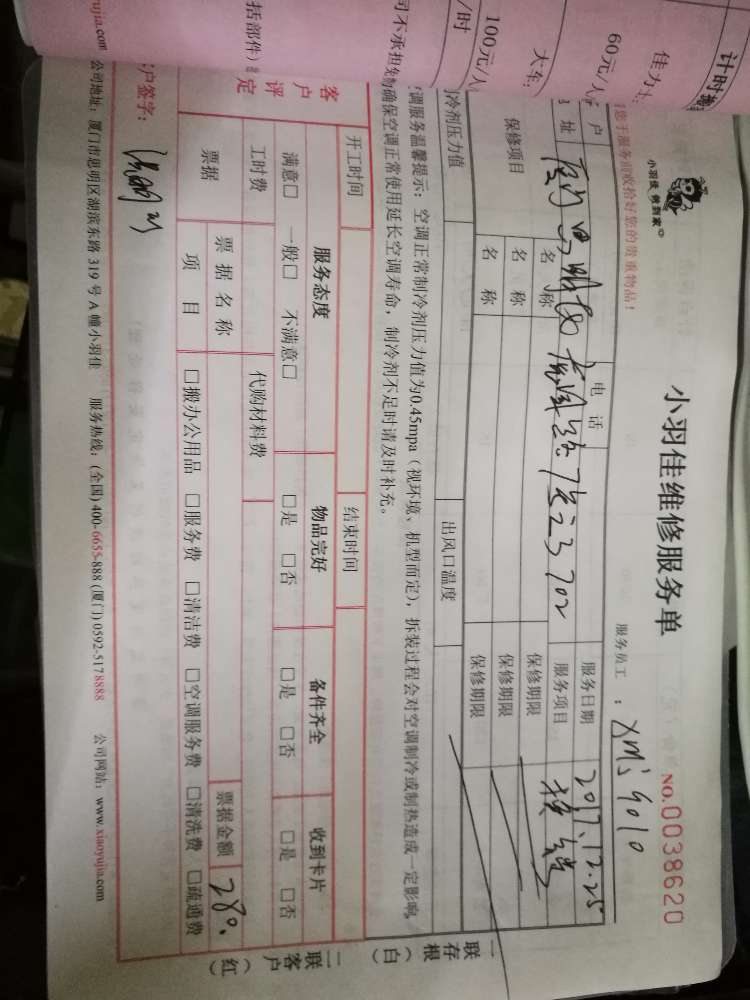 计时
佳力
60元/
大车:
100元/人
/时
司不承担
括部件)
ujia.com
小羽佳 佣到家
小羽佳维修服务单
NO.0038620
您于服务前收拾好您的贵重物品!
服务员工:
户
电话
服务日期 2017.12.25
址
服务项目
保修项目
名称
保修期限
名称
保修期限
名称
保修期限
冷剂压力值
出风口温度
调服务温馨提示:空调正常制冷剂压力值为0.45mpa(视环境、机型而定),拆装过程会对空调制冷或制热造成一定影响,
确保空调正常使用延长空调寿命,制冷剂不足时请及时补充。
开工时间
结束时间
客户评定
服务态度
物品完好
备件齐全
收到卡片
满意□ 一般□ 不满意□
□是 □否
□是 □否
□是 □否
工时费
代购材料费
票据
票据名称
票据金额 280.
项目
□搬办公用品 □服务费 □清洁费 □空调服务费 □清洗费 □疏通费
户签字:
公司地址:厦门市思明区湖滨东路319号A幢小羽佳 服务热线:(全国)400-6655-888 (厦门)0592-5178888 公司网站:www.xiaoyujia.com
一联存根(白)
二联客户(红)